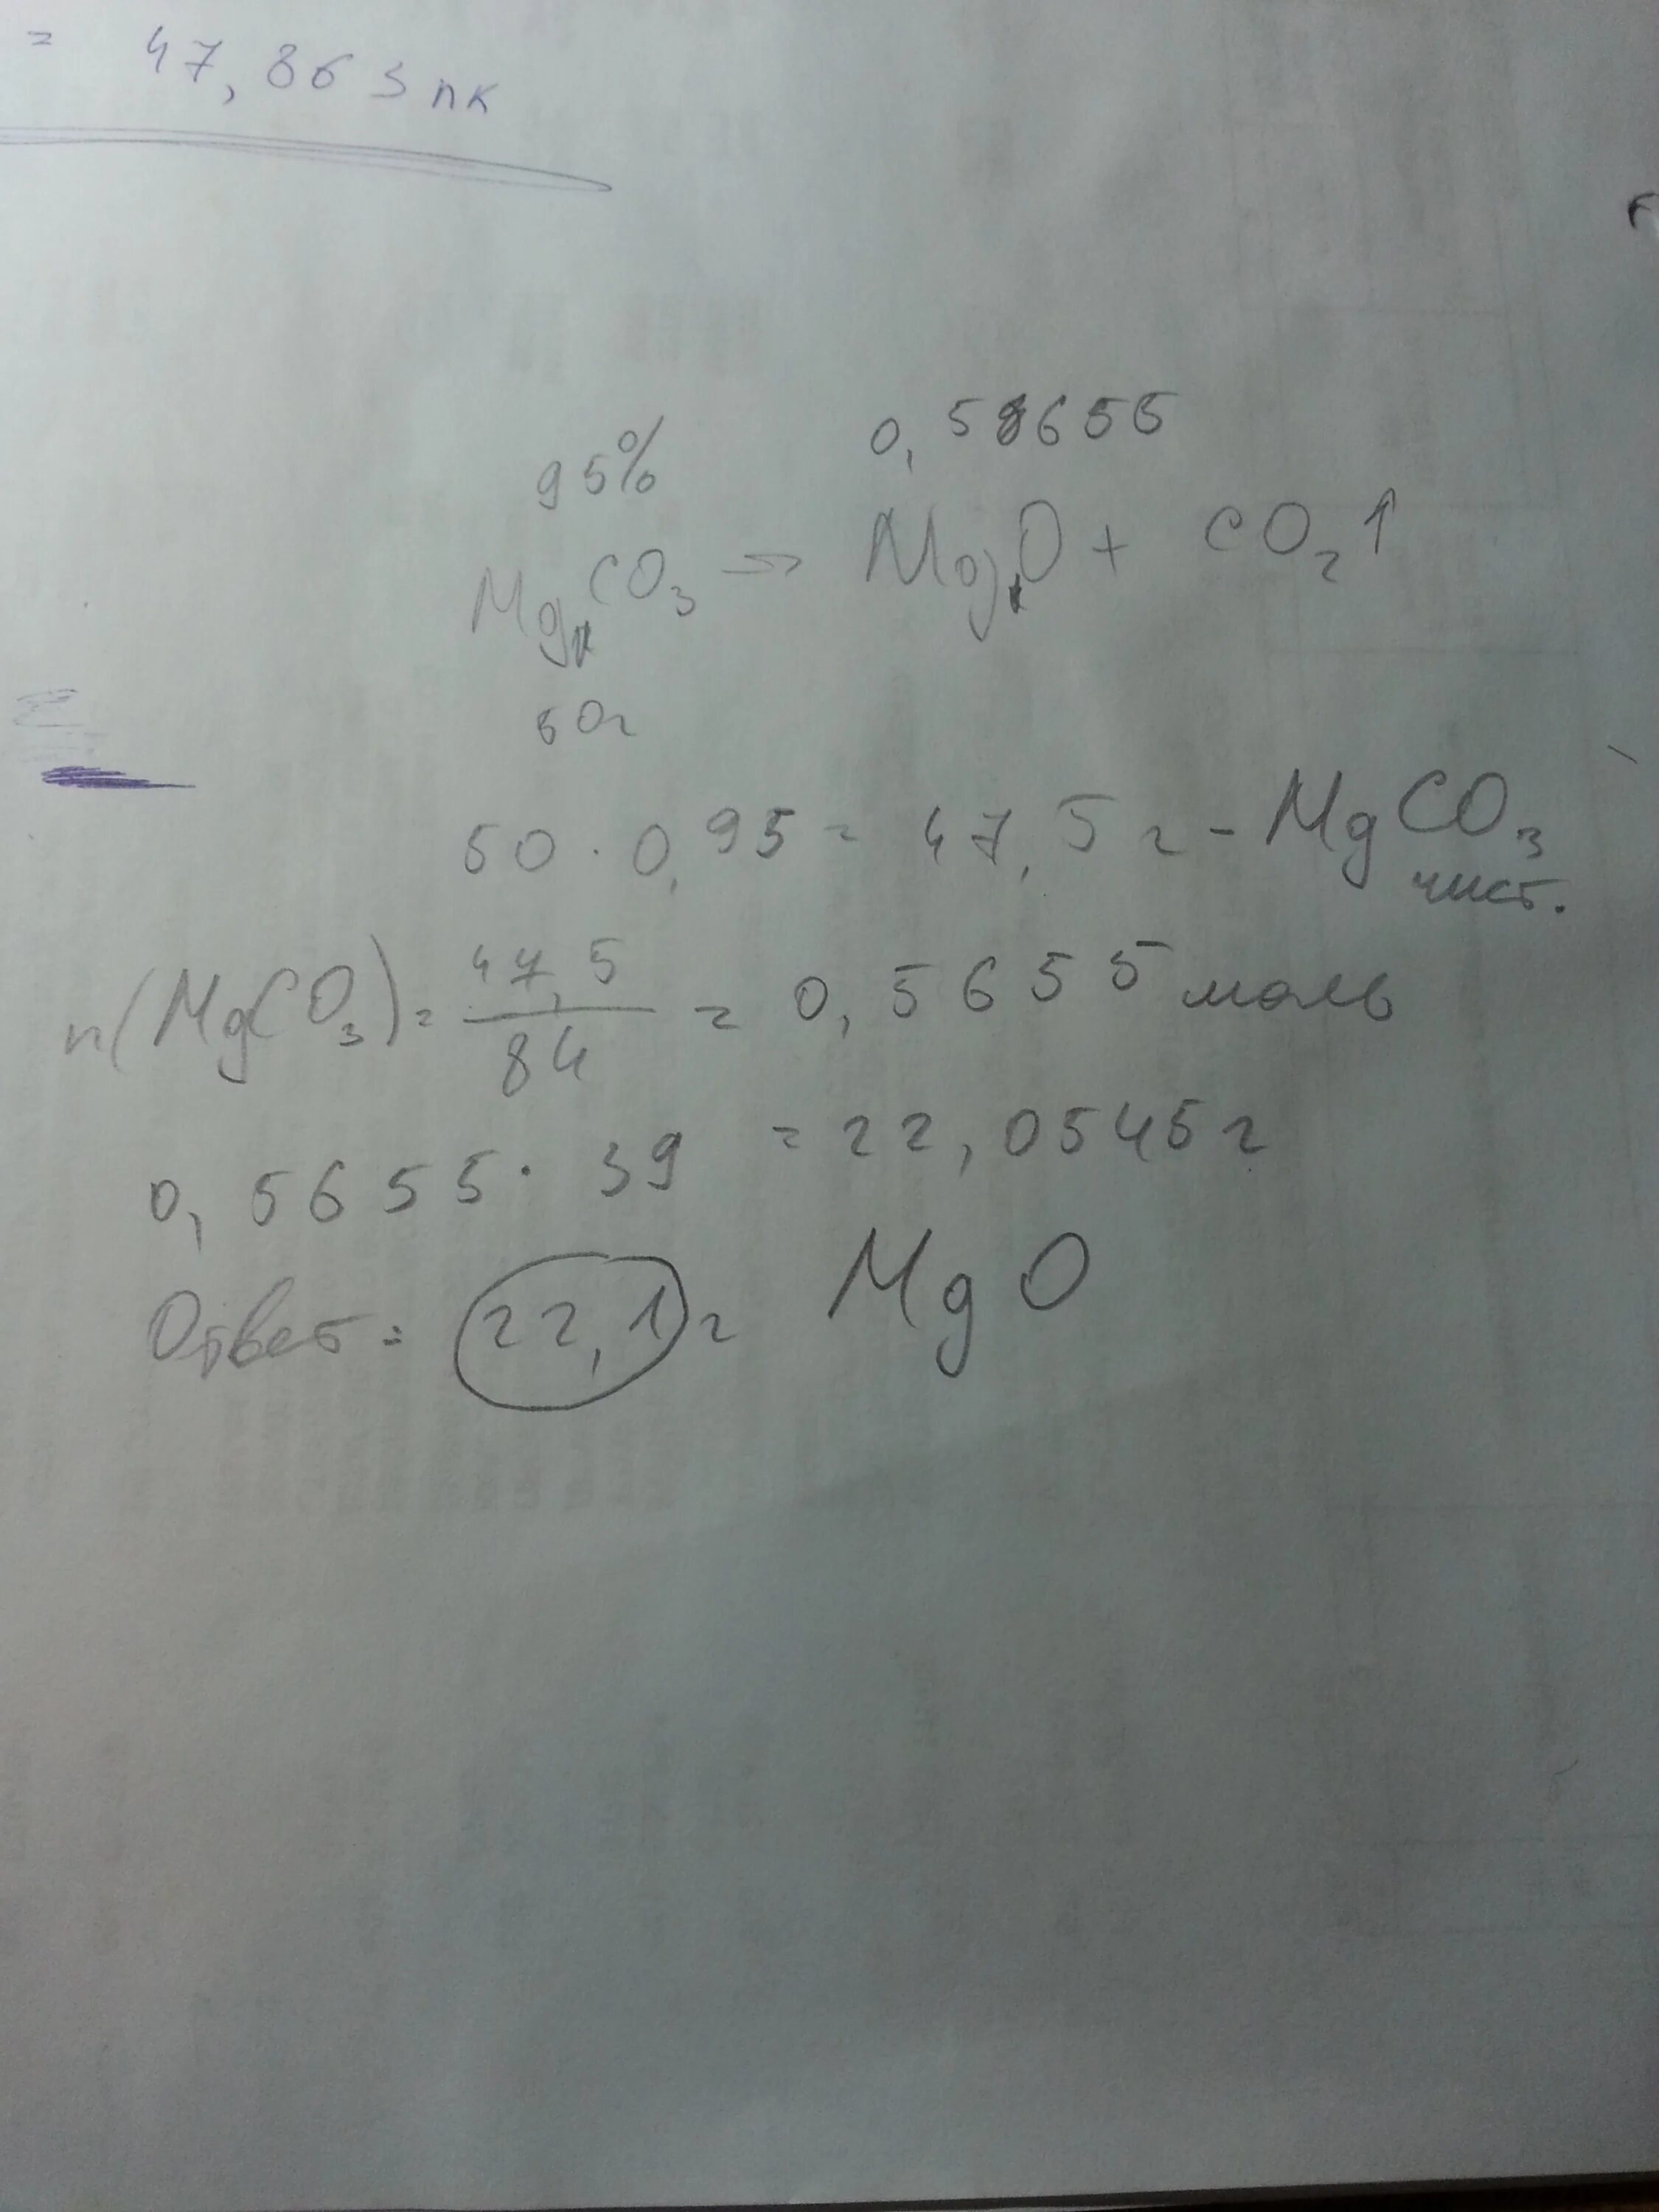 = 47,863 пк
95% 0,58655
MgCO₃ → MgO + CO₂↑
50г
50 · 0,95 = 47,5 г - MgCO₃
чист.
n(MgCO₃) = 47,5/84 = 0,5655 моль
0,5655 · 39 = 22,0545 г
Ответ = 22,1 г MgO